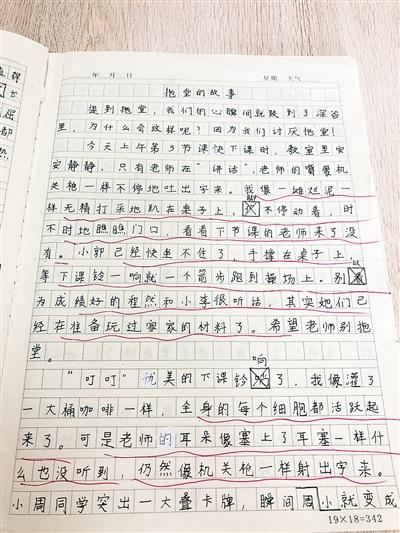 年 月 日 星期 天气
拖堂的故事
提到拖堂，我们的心瞬间就跌到了深谷
里，为什么会这样呢？因为我们讨厌拖堂！
今天上午第3节课快下课时，教室里安
安静静，只有老师在“讲话”，老师的嘴像机
关枪一样不停地吐出字来。我像一滩烂泥一
样无精打采地趴在桌子上，不停动着，时
不时地瞧瞧门口，看看下节课的老师来了没
有。小郭已经快坐不住了，手撑在桌子上，
等下课铃一响就一个箭步跑到操场上。别以
为成绩好的程然和小李很听话，其实她们已
经在准备玩过家家的材料了。希望老师别拖
堂。
“叮叮”优美的下课铃响了，我像灌了
一大桶咖啡一样，全身的每个细胞都活跃起
来了。可是老师的耳朵像塞上了耳塞一样什
么也没听到，仍然像机关枪一样射出字来。
小周同学突出一大叠卡牌，瞬间周小就变成
19×18=342
课
屈
都
热